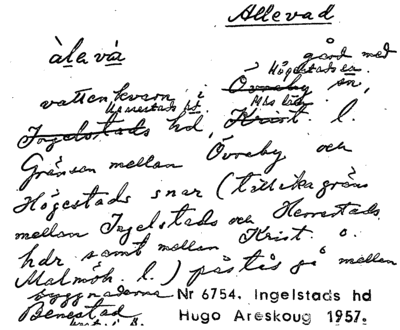 Allevad
àlevà gård med
Högestads sn,
vattenkvarn i Övreby sn,
Herrestads hd. Mlm län
Ingelstads hd, Krist. l.
Gränsen mellan Övreby och
Högestads snar (tillika gräns
mellan Ingelstads och Herrestads
hdr samt mellan Krist. o.
Malmöh. l.) påstås gå mellan
byggnaderna
Benestad
Nr 6754. Ingelstads hd
Hugo Areskoug 1957.